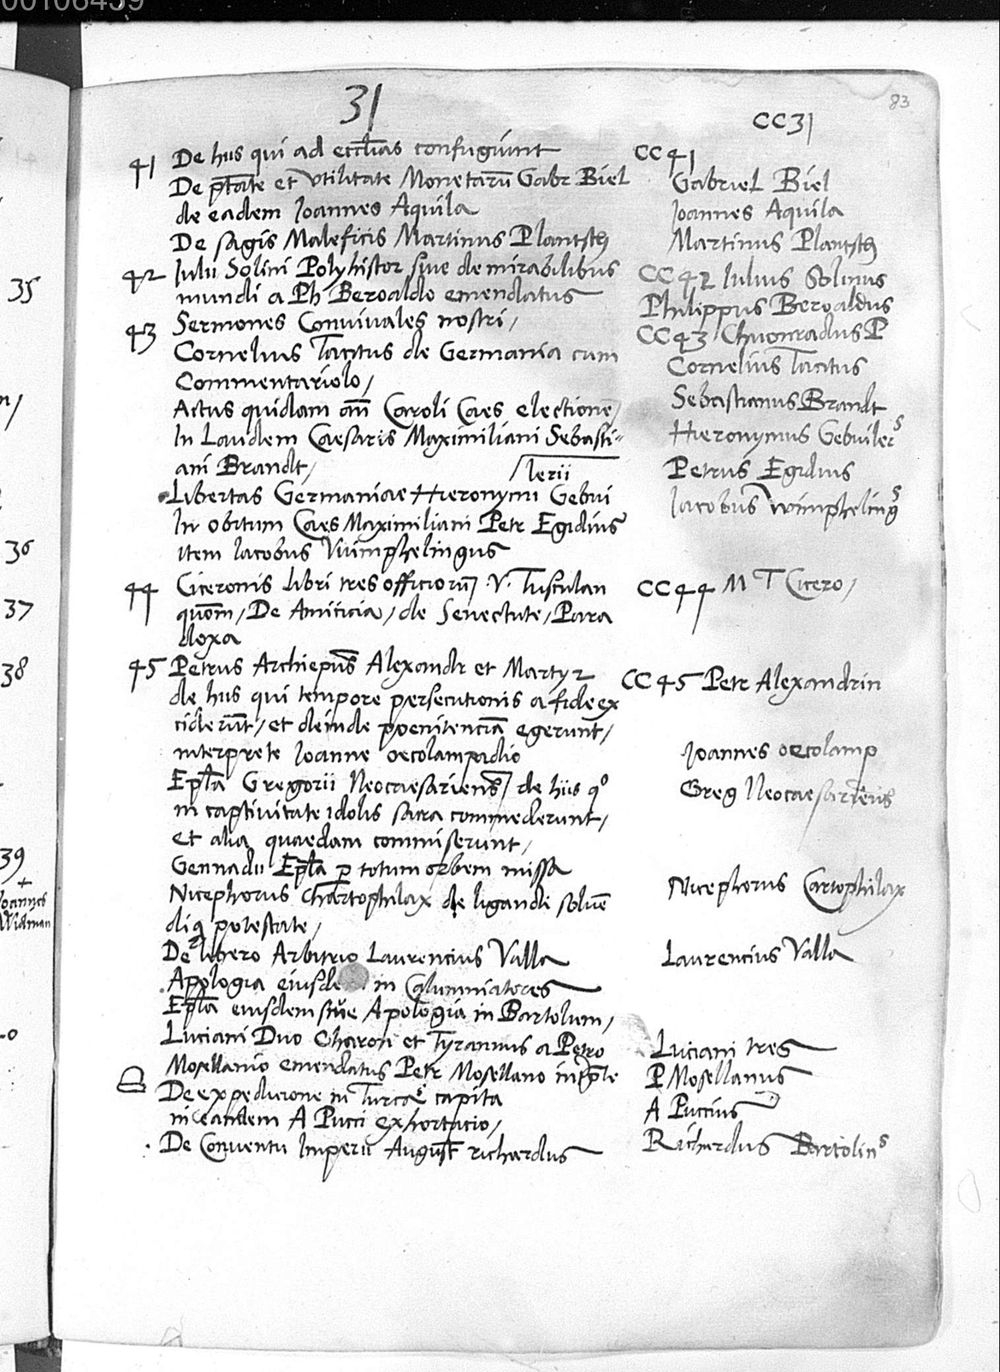 00106459
83
31
CC31
41 De hus qui ad eccl̃ias confugiunt
De ptãte et utilitate Monetarũ Gabr Biel
de eadem Joannes Aquila
De sagis Maleficis Martinus Plantsch
42 Julii Solini Polyhistor siue de mirabilibus
mundi a Ph Beroaldo emendatus
43 Sermones Conviuales nostri/
Cornelius Tacitus de Germania cum
Commentariolo/
Actus quidam añ Caroli Caes electionẽ/
In Laudem Caesaris Maximiliani Sebasti-
ani Brandt/
lerii
Libertas Germaniae Hieronymi Gebui
In obitum Caes Maximiliani Petr Egidius
item Jacobus Vuimphelingus
44 Ciceronis libri tres officiorũ V. Tusculan
quõm/ De Amicicia/ de Senectute/ Para
doxa
45 Petrus Archiepũs Alexandr et Martyr
de hus qui tempore persecutionis a fide ex
ciderũt/ et deinde poenitenciã egerunt/
interprete Joanne oecolampadio
Epl̃a Gregorii Neocaesariens/ de hiis qo
in captiuitate idolis sacra commederunt/
et alia quaedam commiserunt/
Gennadii Epl̃a p totum orbem missa
Nicephorus Chartophilax de ligandi soluẽ
diq potestate/
De libero Arbitrio Laurencius Valla
Apologia eiusde in Calumniatores
Epl̃a eiusdem siue Apologia in Bartolum/
Luciani Duo Charon et Tyrannus a Petro
Mosellanio emendatus Petr Mosellano inṗte
De expedicione in Turcos capita
in eandem A Pucci exhortacio/
De Conuentu Imperii August richardus
CC41
Gabriel Biel
Joannes Aquila
Martinus Plantsch
CC42 Julius Solinus
Philippus Beroaldus
CC43 Chuonradus P
Cornelius Tacitus
Sebastianus Brandt
Hieronymus Gebuilers
Petrus Egidius
Jacobus wimphelings
CC44 M T Cicero/
CC45 Petr Alexandrin
Joannes oecolamp
Greg Neocaesariens
Nicephorus Cartophilax
Laurencius Valla
Luciani tres
P Mosellanus
A Puccius
Richardus Bartolins
35
36
37
38
39
Joannes
Widman